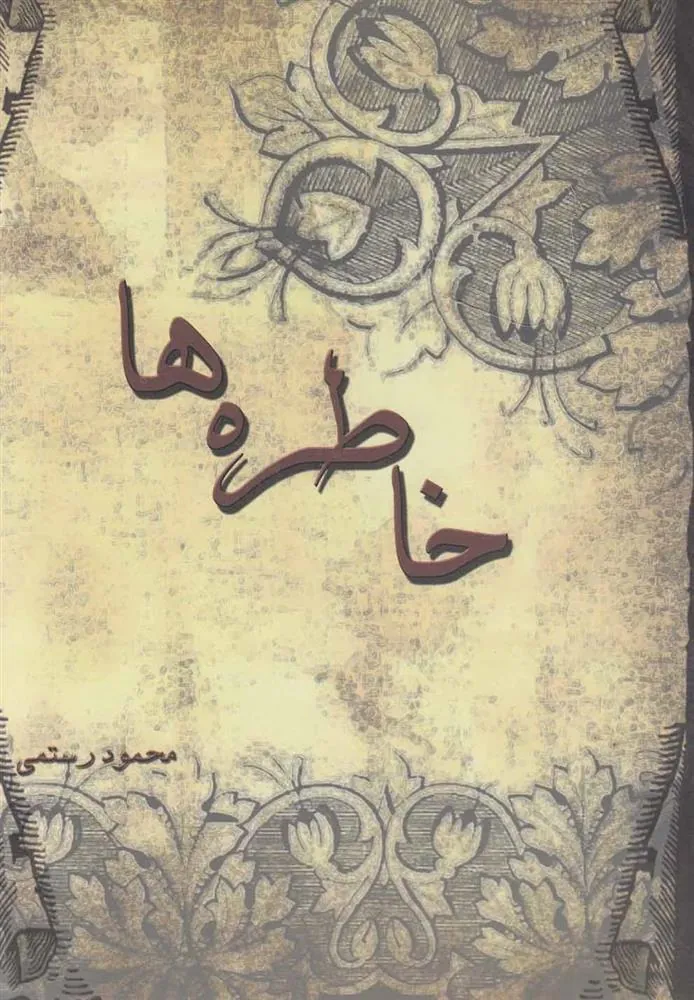 خاطره‌ها
محمود رستمی